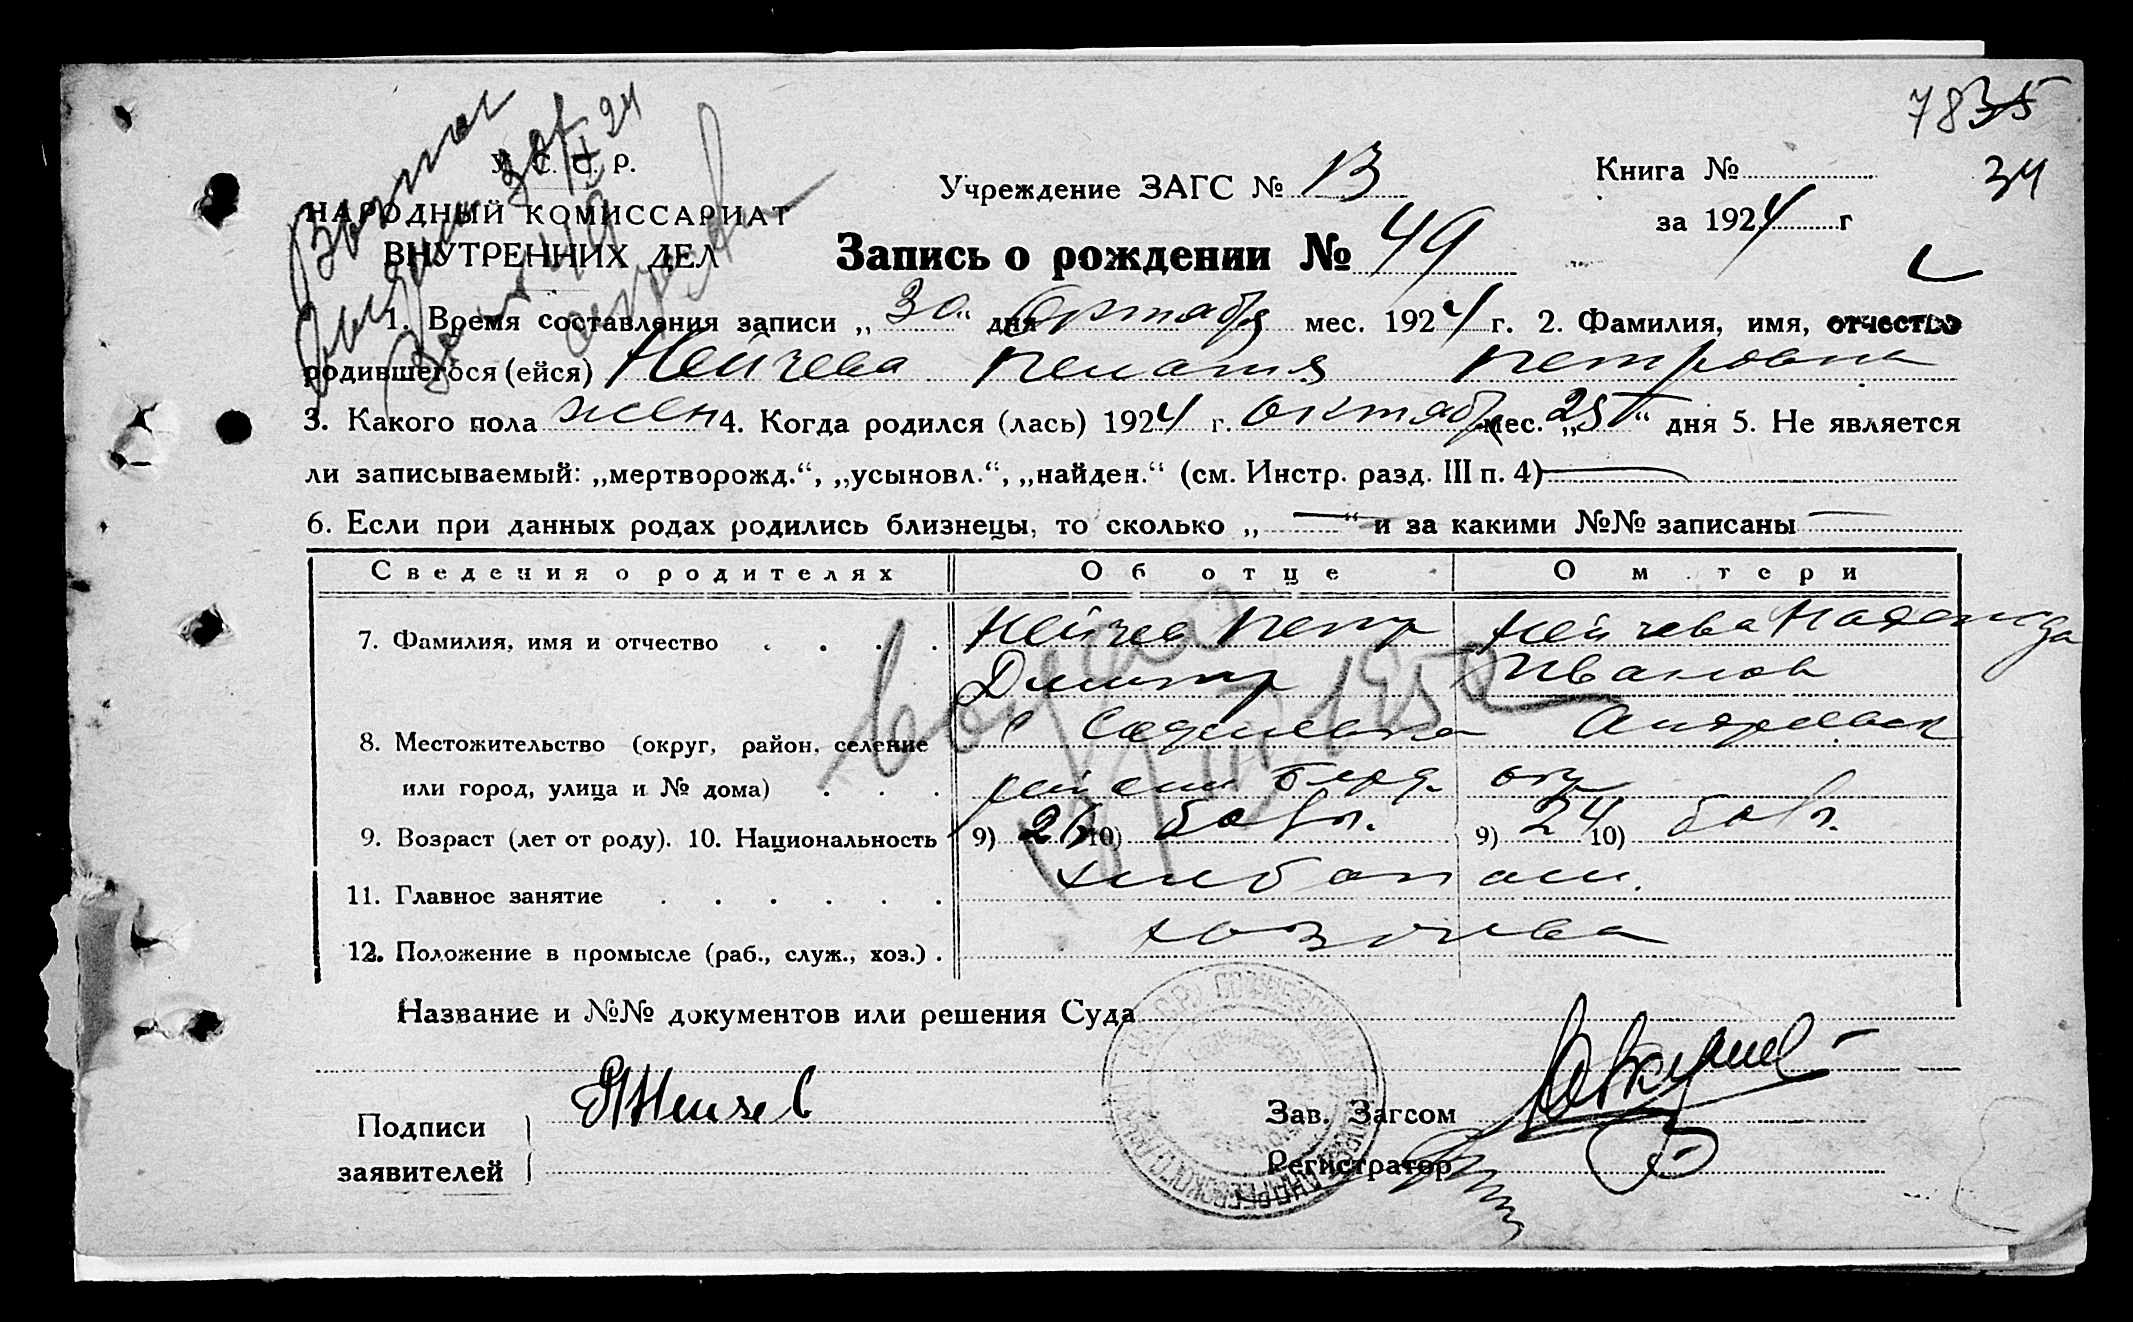 7835
34
У. С. С. Р.
НАРОДНЫЙ КОМИССАРИАТ
ВНУТРЕННИХ ДЕЛ
Учреждение ЗАГС № 13
Книга №
за 1924 г
Запись о рождении № 49
1. Время составления записи „30“ дня Октября мес. 1924 г. 2. Фамилия, имя, отчество
родившегося (ейся) Нейчева Пелагия Петровна
3. Какого пола жен 4. Когда родился (лась) 1924 г. октября мес. „25“ дня 5. Не является
ли записываемый: „мертворожд.“, „усыновл.“, „найден.“ (см. Инстр. разд. III п. 4) —
6. Если при данных родах родились близнецы, то сколько „—“ и за какими №№ записаны —
Сведения о родителях Об отце О м тери
7. Фамилия, имя и отчество Нейчев Петр Нейчева Надежда
Дмитр Иванов
8. Местожительство (округ, район, селение с Софиевка Андреевск
или город, улица и № дома) район Бердя окр
9. Возраст (лет от роду). 10. Национальность 9) 26 10) болг. 9) 24 10) болг.
11. Главное занятие хлебопаш.
12. Положение в промысле (раб., служ., хоз.) хозяева
Название и №№ документов или решения Суда
Подписи
заявителей
Нейчев
Зав. Загсом
Регистратор